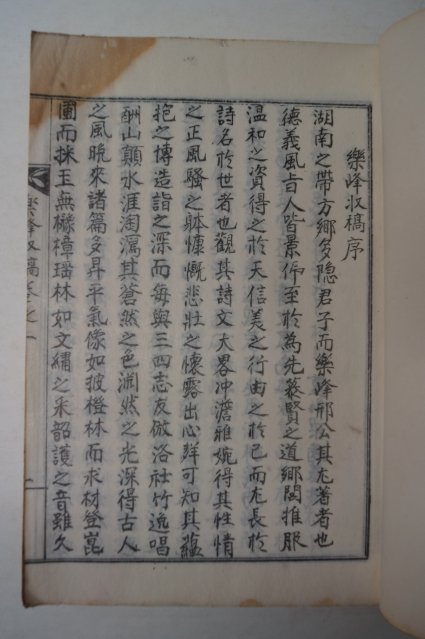 樂峰收稿序
湖南之帶方鄉多隐君子而樂峰邢公其尤著者也
德義風旨人皆景仰至於為先裒賢之道鄉閭推服
温和之資得之於天信美之行由之於己而尤長於
詩名於世者也觀其詩文大畧冲澹雅婉得其性情
之正風騷之躰慷慨悲壯之懷露出心群可知其蘊
抱之博造詣之深而每與三四志友倣洛社竹逸唱
酬山巔水涯淘瀉其蒼然之色淵然之光深得古人
之風晩來諸篇多昇平氣像如披橙林而求材登崑
圃而採玉無橡樟瑶林如文繡之采韶護之音雖久
樂峰收稿卷之一